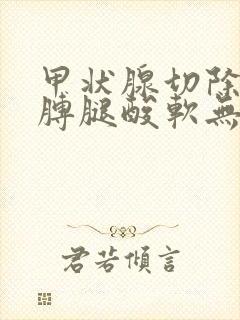 甲状腺切除
膊腿酸軟無
君若傾言